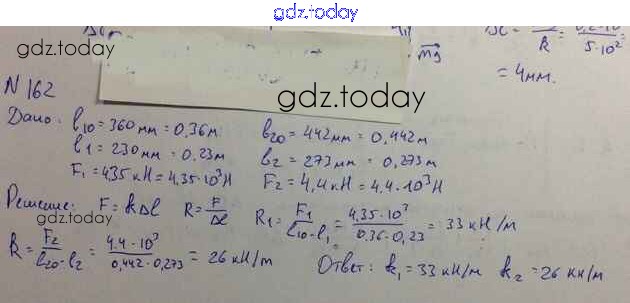 gdz.today
gdz.today
k 5·10²
mg
= 4мм.
gdz.today
N 162
Дано: l10 = 360 мм = 0,36м l20 = 442мм = 0,442м
l1 = 230 мм = 0,23м l2 = 273мм = 0,273м
F1 = 4,35 кН = 4,35·10³Н F2 = 4,4 кН = 4,4·10³Н
Решение: F = kΔl k = F/Δl k1 = F1/(l10-l1) = 4,35·10³/(0,36-0,23) = 33 кН/м
gdz.today
k = F2/(l20-l2) = 4,4·10³/(0,442-0,273) = 26 кН/м Ответ: k1 = 33 кН/м k2 = 26 кН/м